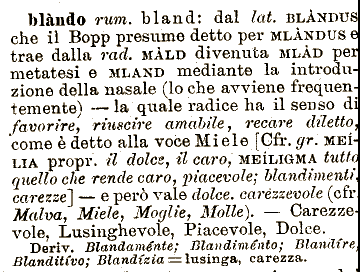 blàndo rum. bland: dal lat. BLÀNDUS
che il Bopp presume detto per MLÀNDUS e
trae dalla rad. MÀLD divenuta MLÀD per
metatesi e MLAND mediante la introdu-
zione della nasale (lo che avviene frequen-
temente) — la quale radice ha il senso di
favorire, riuscire amabile, recare diletto,
come è detto alla voce Miele [Cfr. gr. MEÍ-
LIA propr. il dolce, il caro, MEÍLIGMA tutto
quello che rende caro, piacevole; blandimenti,
carezze] — e però vale dolce. carézzevole (cfr.
Malva, Miele, Moglie, Molle). — Carezze-
vole, Lusinghevole, Piacevole, Dolce.
Deriv. Blandaménte; Blandiménto; Blandíre,
Blanditívo; Blandízia = lusinga, carezza.